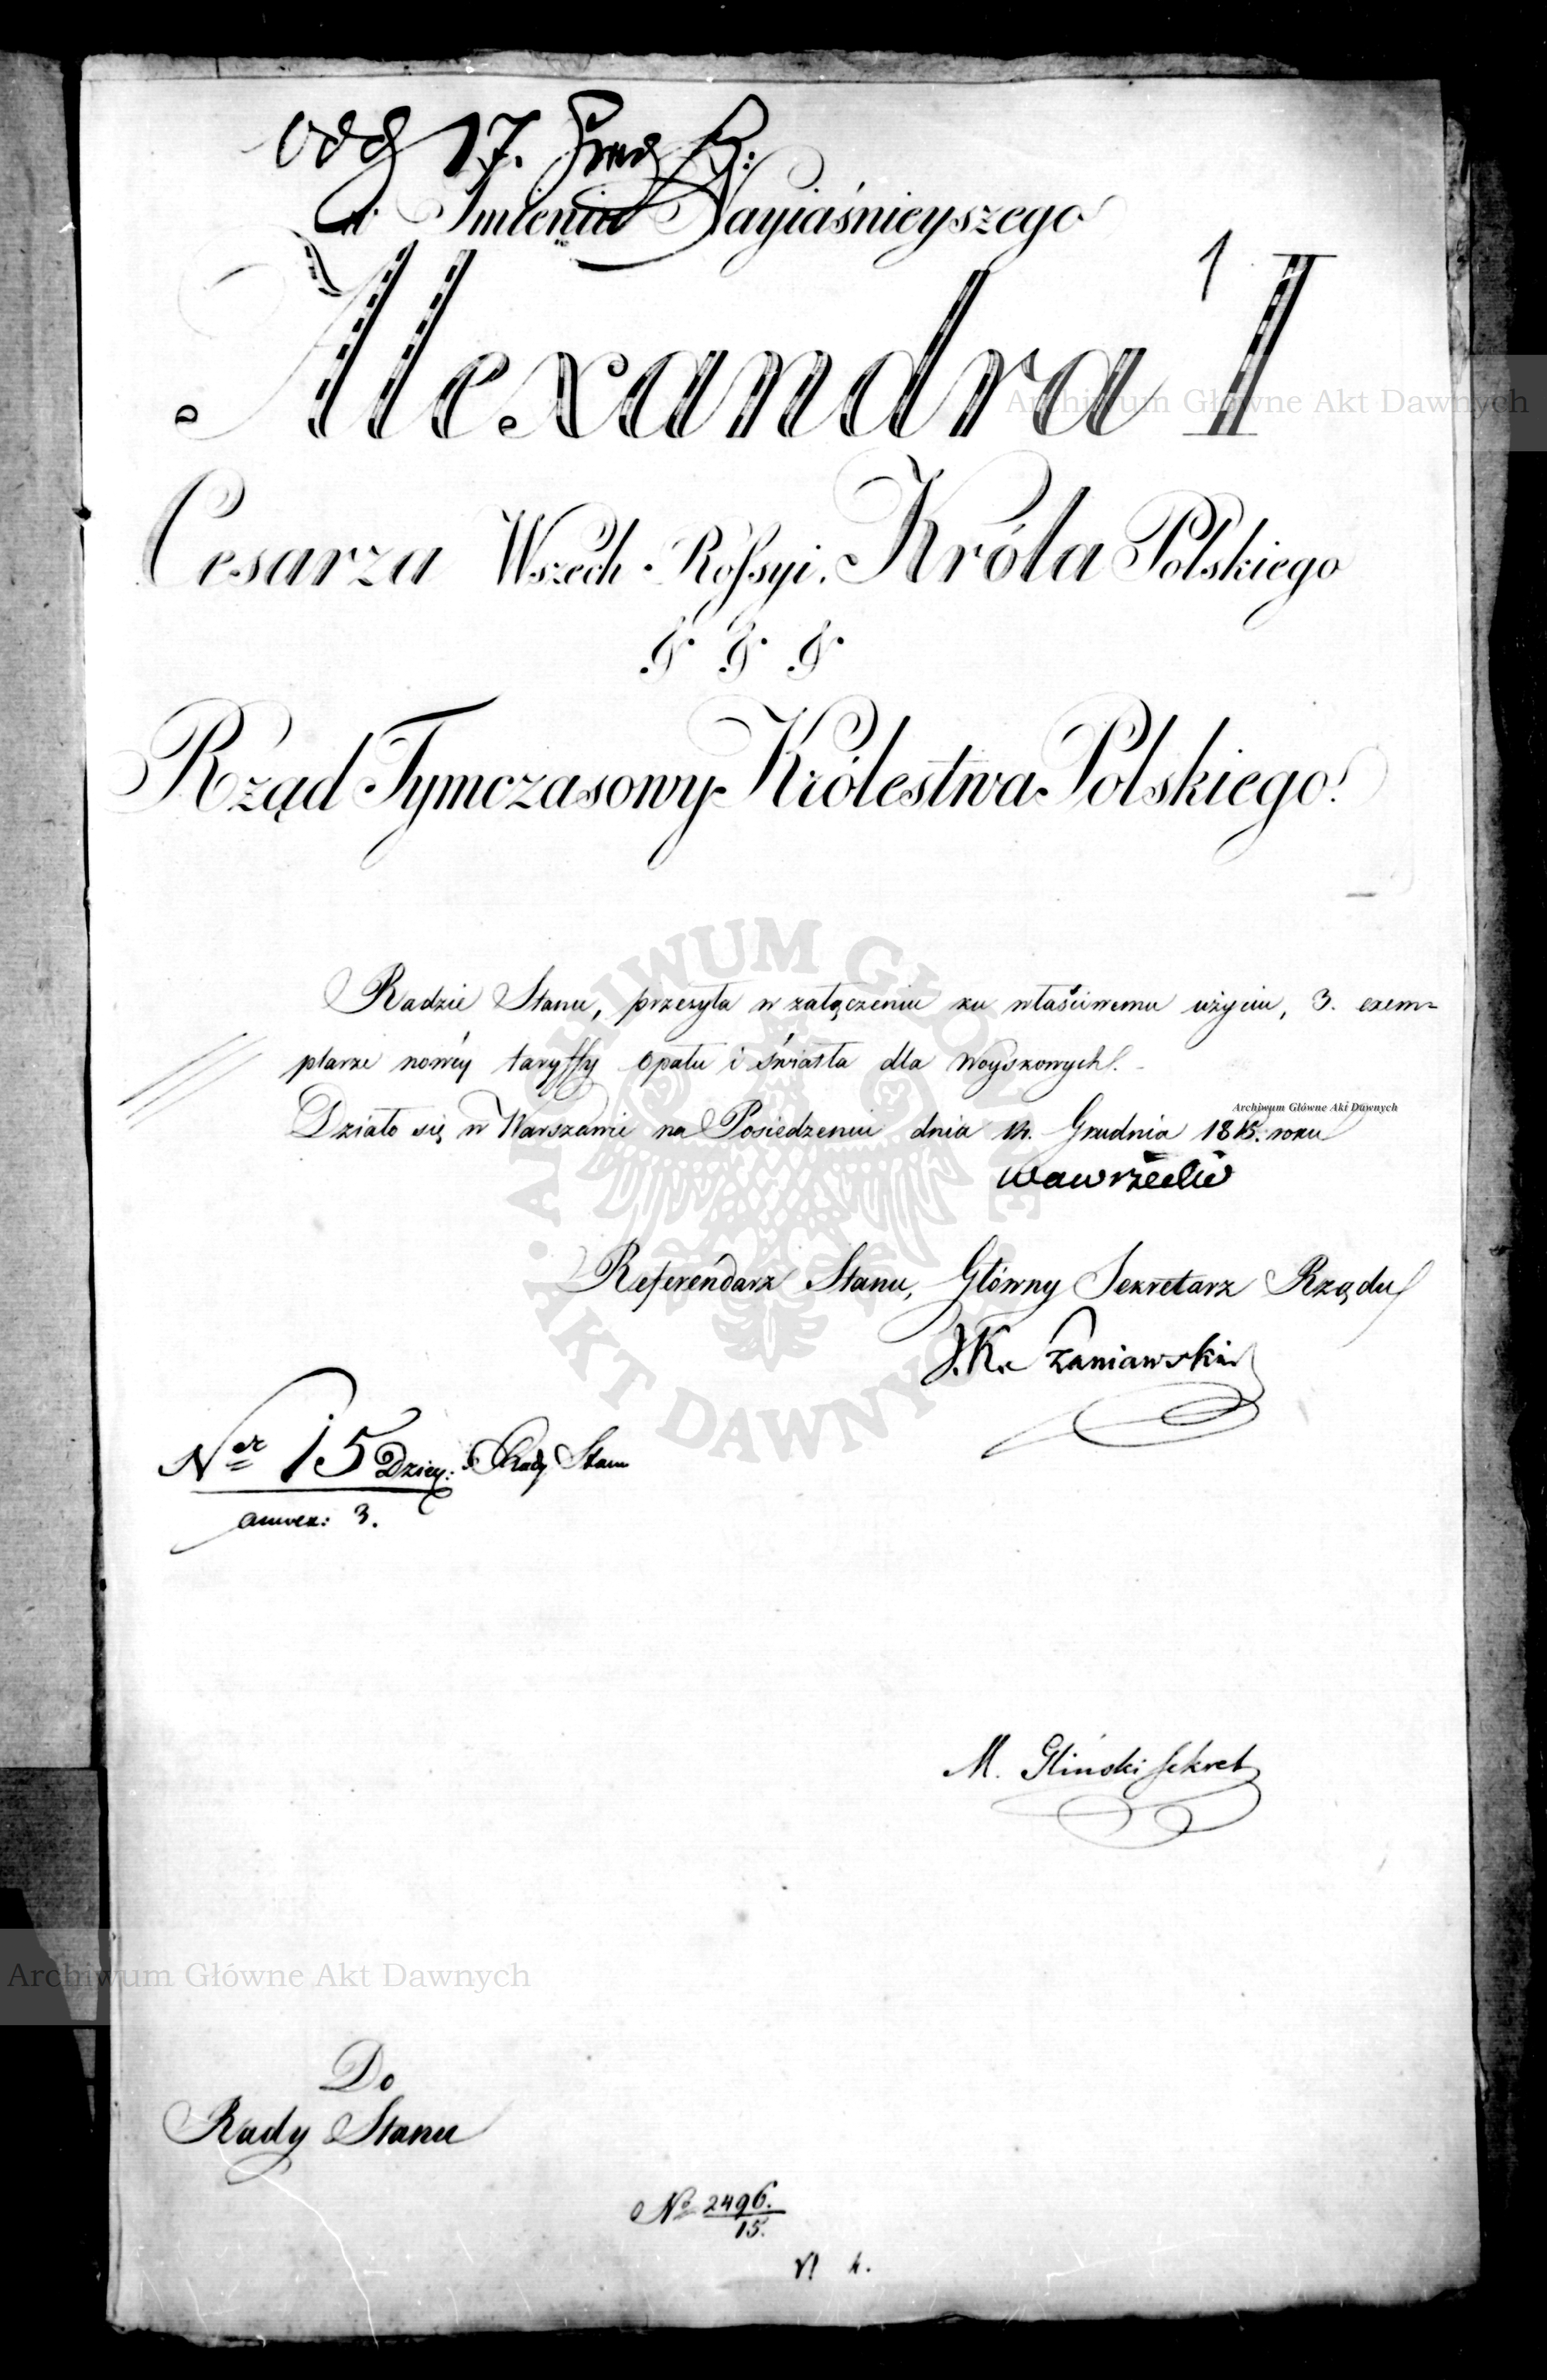 odd 17.
w Imieniu Nayiaśnieyszego
1
Alexandra I
Cesarza Wszech-Rossyi. Króla Polskiego
& & &
Rząd Tymczasowy Królestwa Polskiego.
Radzie Stanu, przesyła w załączeniu ku właściwemu użyciu, 3. exem=
plarze nowéy taryffy opału i światła dla Woyskowych.
Działo się w Warszawie na Posiedzeniu dnia 14. Grudnia 1815. roku
Wawrzecki
Referendarz Stanu, Główny Sekretarz Rządu
J. K. Szaniawski
Ner 15 Dzien: Rady Stanu
annex: 3.
M. Gliński Sekret
Do
Rady Stanu
No 2496.
15.
4.
Archiwum Główne Akt Dawnych
Archiwum Główne Akt Dawnych
Archiwum Główne Akt Dawnych
ARCHIWUM GŁÓWNE AKT DAWNYCH